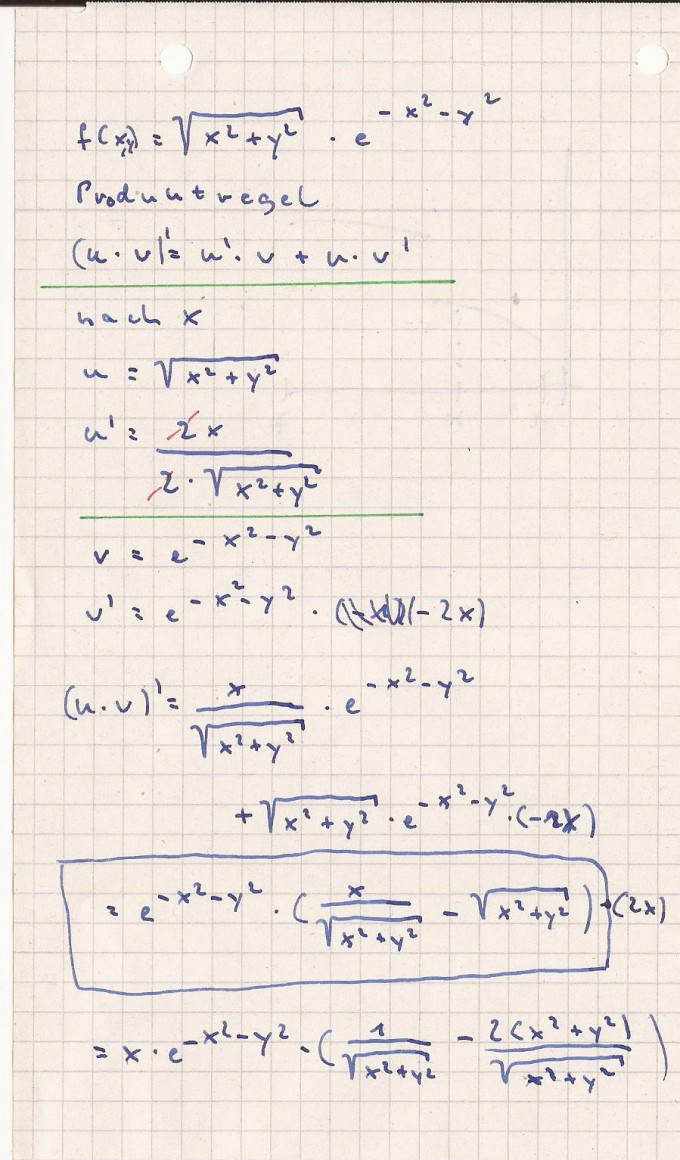 f(x,y) = √(x² + y²) · e^(-x² - y²)
Produktregel
(u · v)' = u' · v + u · v'
nach x
u = √(x² + y²)
u' = 2x / (2 · √(x² + y²))
v = e^(-x² - y²)
v' = e^(-x² - y²) · (-2x)
(u · v)' = x / √(x² + y²) · e^(-x² - y²)
+ √(x² + y²) · e^(-x² - y²) · (-2x)
= e^(-x² - y²) · (x / √(x² + y²) - √(x² + y²)) · (2x)
= x · e^(-x² - y²) · (1 / √(x² + y²) - 2(x² + y²) / √(x² + y²))